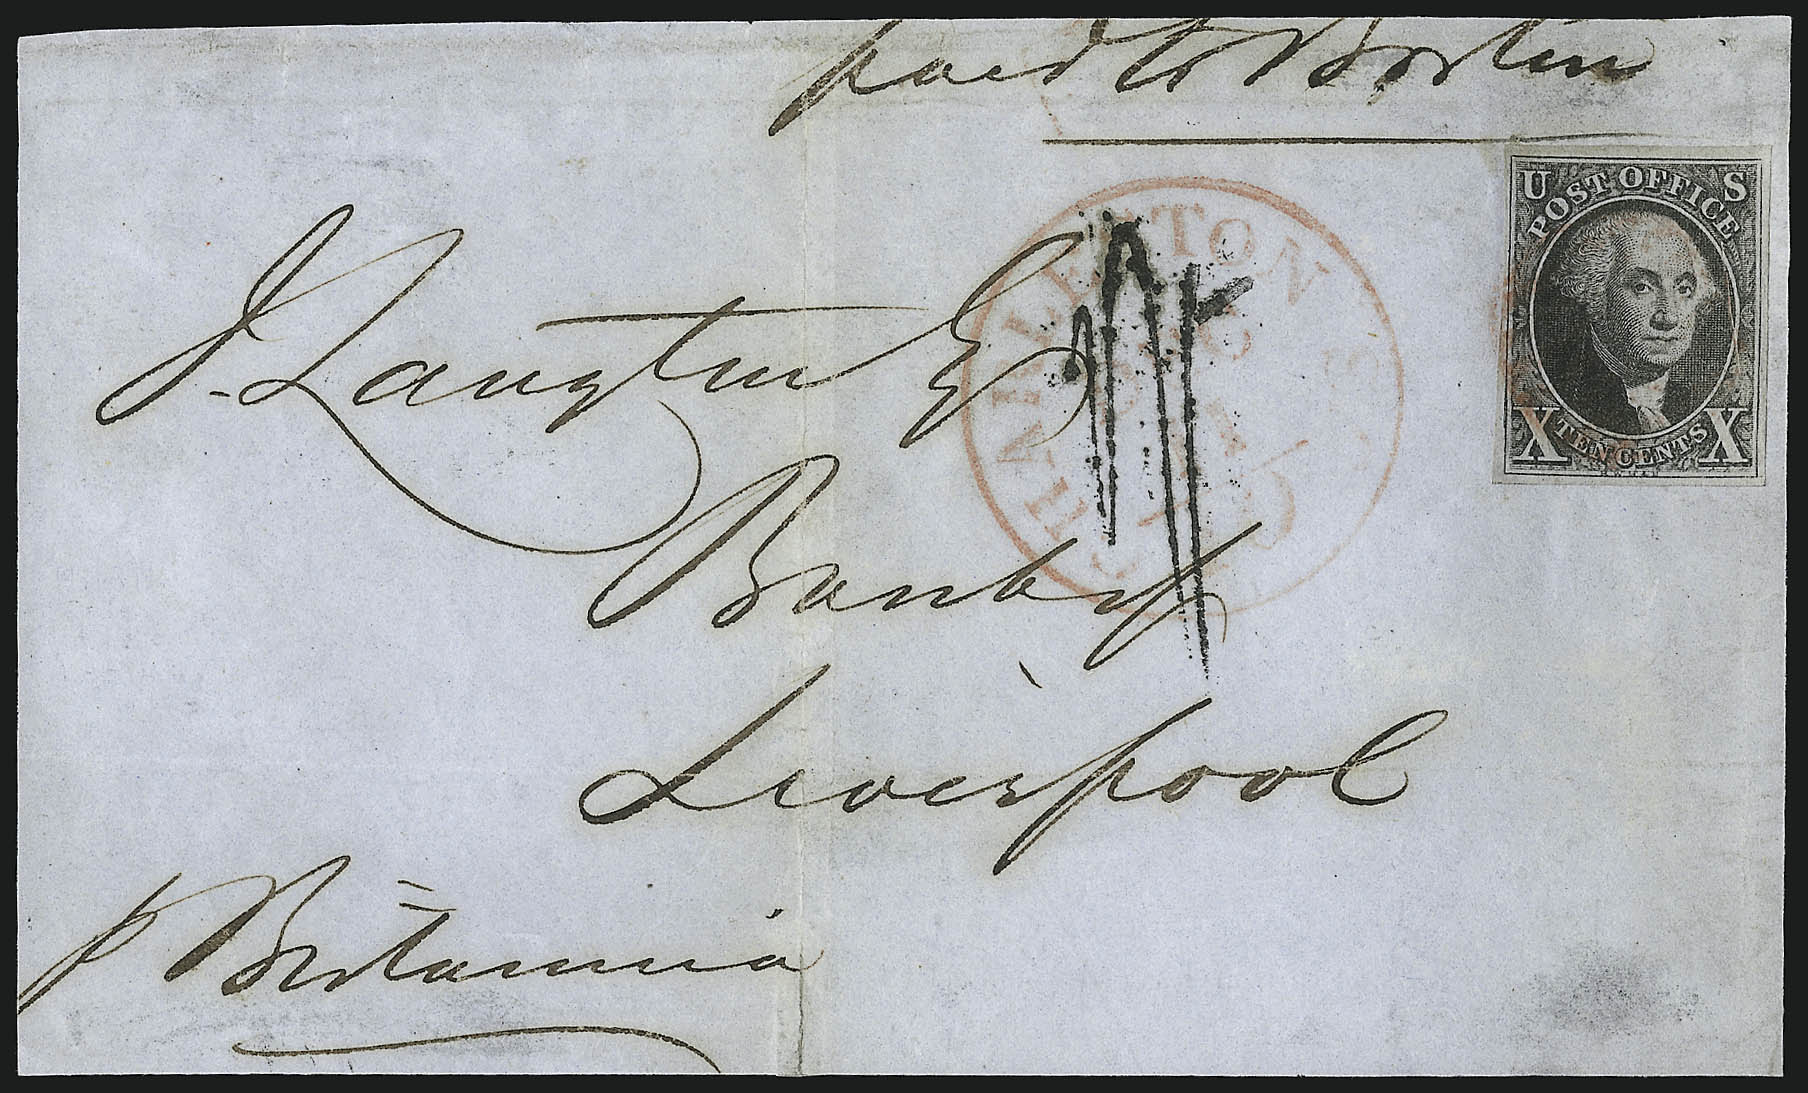 paid to Boston
U S
POST OFFICE
X TEN CENTS X
CHARLESTON
J. Langton Esq
Banker
Liverpool
p Britannia